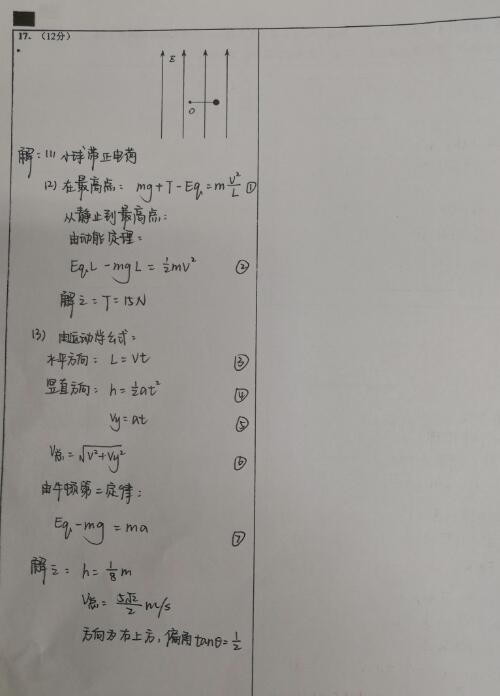 17. (12分)
E
O
解：(1) 小球带正电荷
(2) 在最高点：mg+T-Eq=m\frac{v^2}{L} ①
从静止到最高点：
由动能定理：
EqL-mgL=\frac{1}{2}mv^2 ②
解之：T=15N
(3) 由运动学公式：
水平方向：L=Vt ③
竖直方向：h=\frac{1}{2}at^2 ④
Vy=at ⑤
V总=\sqrt{V^2+Vy^2} ⑥
由牛顿第二定律：
Eq-mg=ma ⑦
解之：h=\frac{1}{8}m
V总=\frac{5\sqrt{2}}{2}m/s
方向为右上方，偏角tanθ=\frac{1}{2}